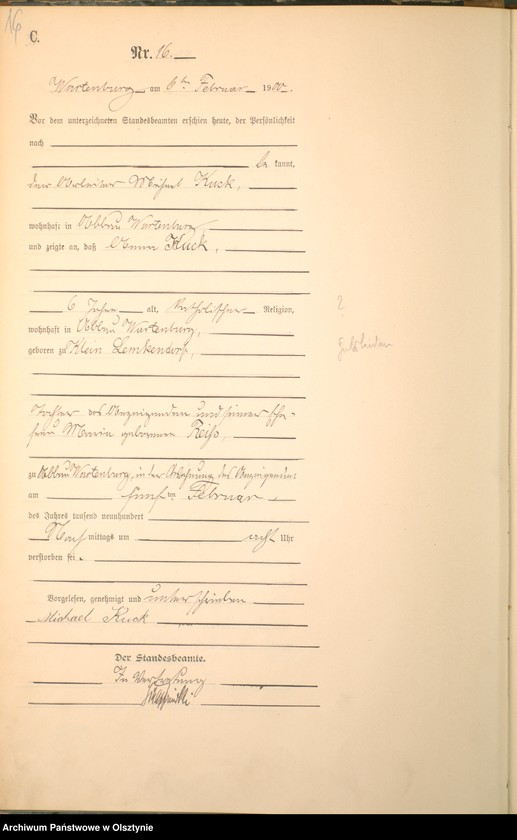 16
C.
Nr. 16.
Wartenburg am 6ten Februar 1900.
Vor dem unterzeichneten Standesbeamten erschien heute, der Persönlichkeit
nach
be kannt,
der Arbeiter Michael Kuck,
wohnhaft in Abbau Wartenburg,
und zeigte an, daß Anna Kuck,
6 Jahre alt, katholischer Religion,
wohnhaft in Abbau Wartenburg,
geboren zu Klein Lemkendorf,
Tochter des Anzeigenden und seiner Ehe-
frau Maria geborenen
zu Abbau Wartenburg, in der Wohnung des Anzeigenden
am fünften Februar
des Jahres tausend neunhundert
Nach mittags um acht Uhr
verstorben sei.
Vorgelesen, genehmigt und unterschrieben
Michael Kuck
Der Standesbeamte.
In Vertretung
Archiwum Państwowe w Olsztynie